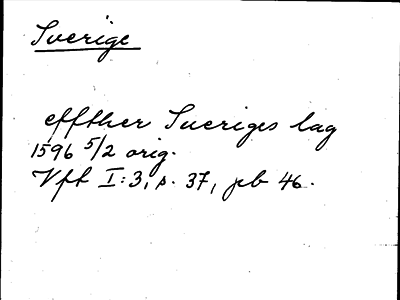 Sverige
effther Sueriges lag
1596 5/2 orig.
Vft I:3, s. 37, pb 46.